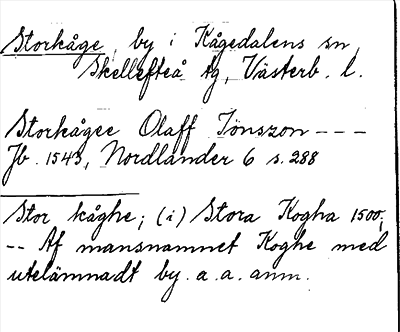 Storkåge, by i Kågedalens sn,
Skellefteå tg, Västerb. l.
Storkågee Olaff Jönszon - - -
Jb. 1543, Nordlander 6 s. 288
Stor kåghe; (i) Stora Kogha 1500;
-- Af mansnamnet Koghe med
utelämnadt by. a. a. anm.